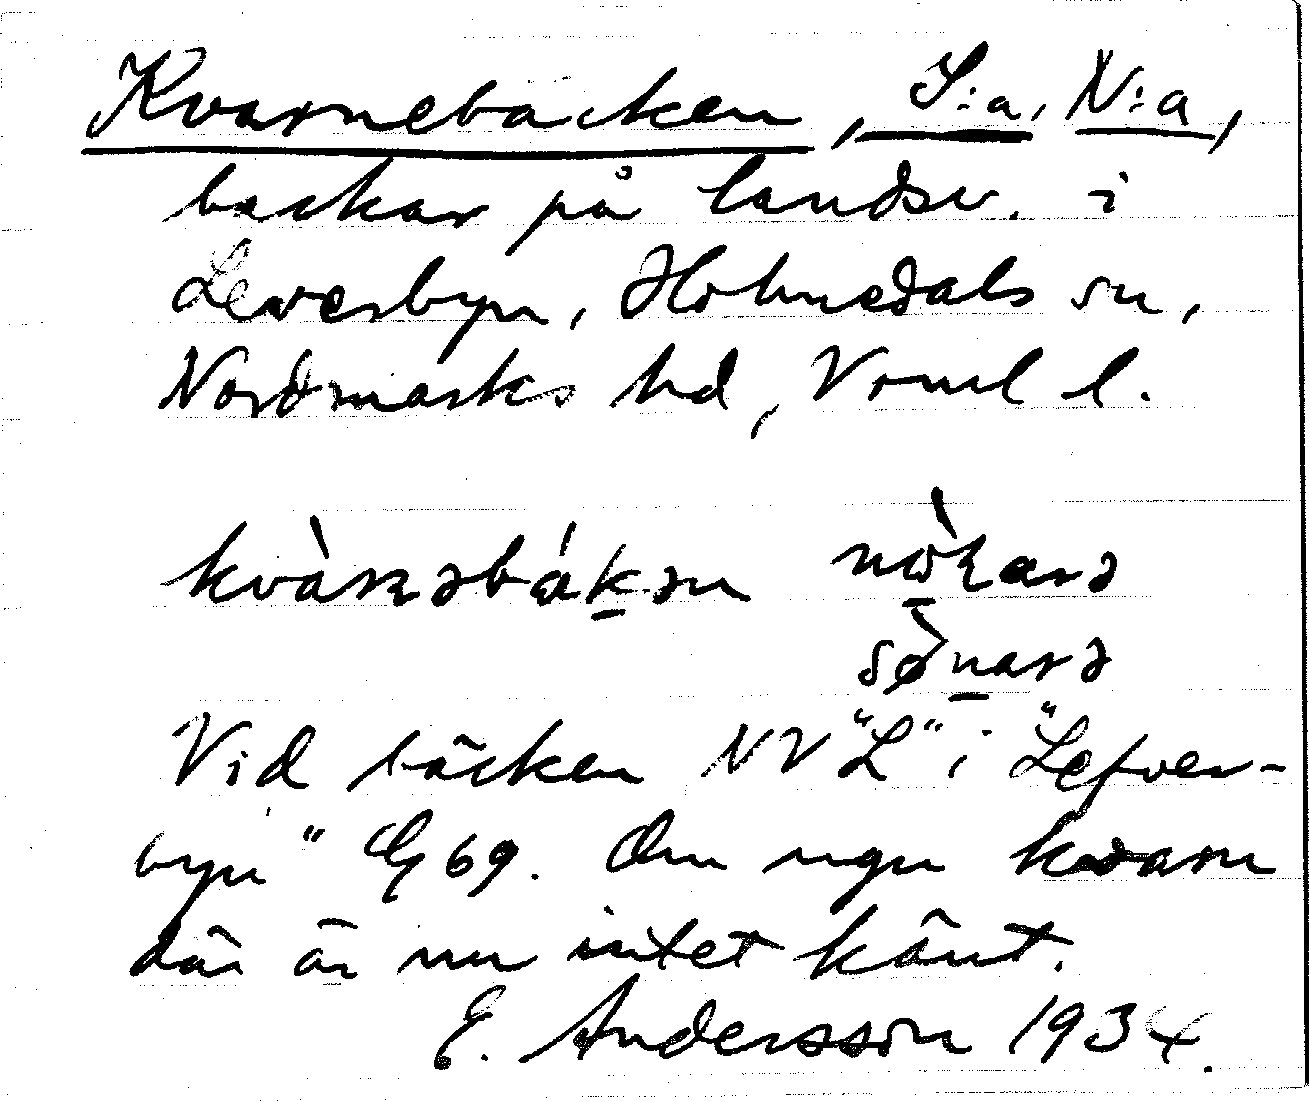 Kvarnebacken, S:a, N:a,
backar på landsv. i
Leverbyn, Holmedals sn,
Nordmarks hd, Vrml l.
kvàrnəbákən nòlarə
sø̀narə
Vid bäcken NV "L" i "Lefver-
byn" G 69. Om ngn kvarn
där är nu intet känt.
E. Andersson 1934.